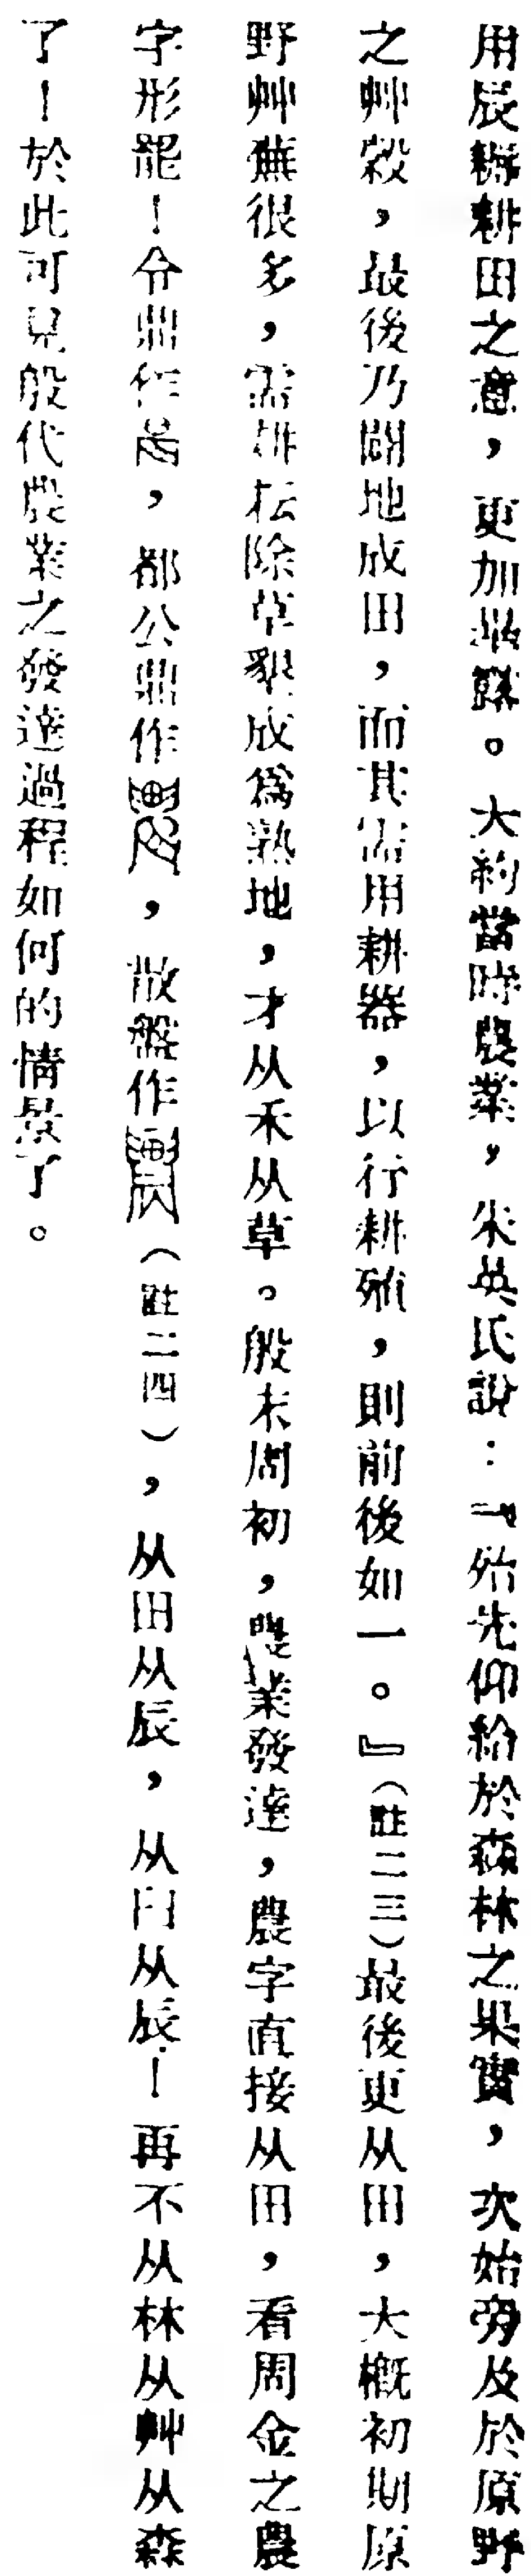 用辰耨耕田之意，更加暴露。大約當時農業，朱英氏說：『殆先仰給於森林之果實，次始旁及於原野
之艸穀，最後乃闢地成田，而其需用耕器，以行耕殖，則前後如一。』（註二三）最後更从田，大概初期原
野艸蕪很多，需耕耘除草墾成為熟地，才从禾从草。殷末周初，農業發達，農字直接从田，看周金之農
字形罷！令鼎作，都公鼎作，散盤作（註二四），从田从辰，从臼从辰！再不从林从艸从森
了！於此可見殷代農業之發達過程如何的情景了。